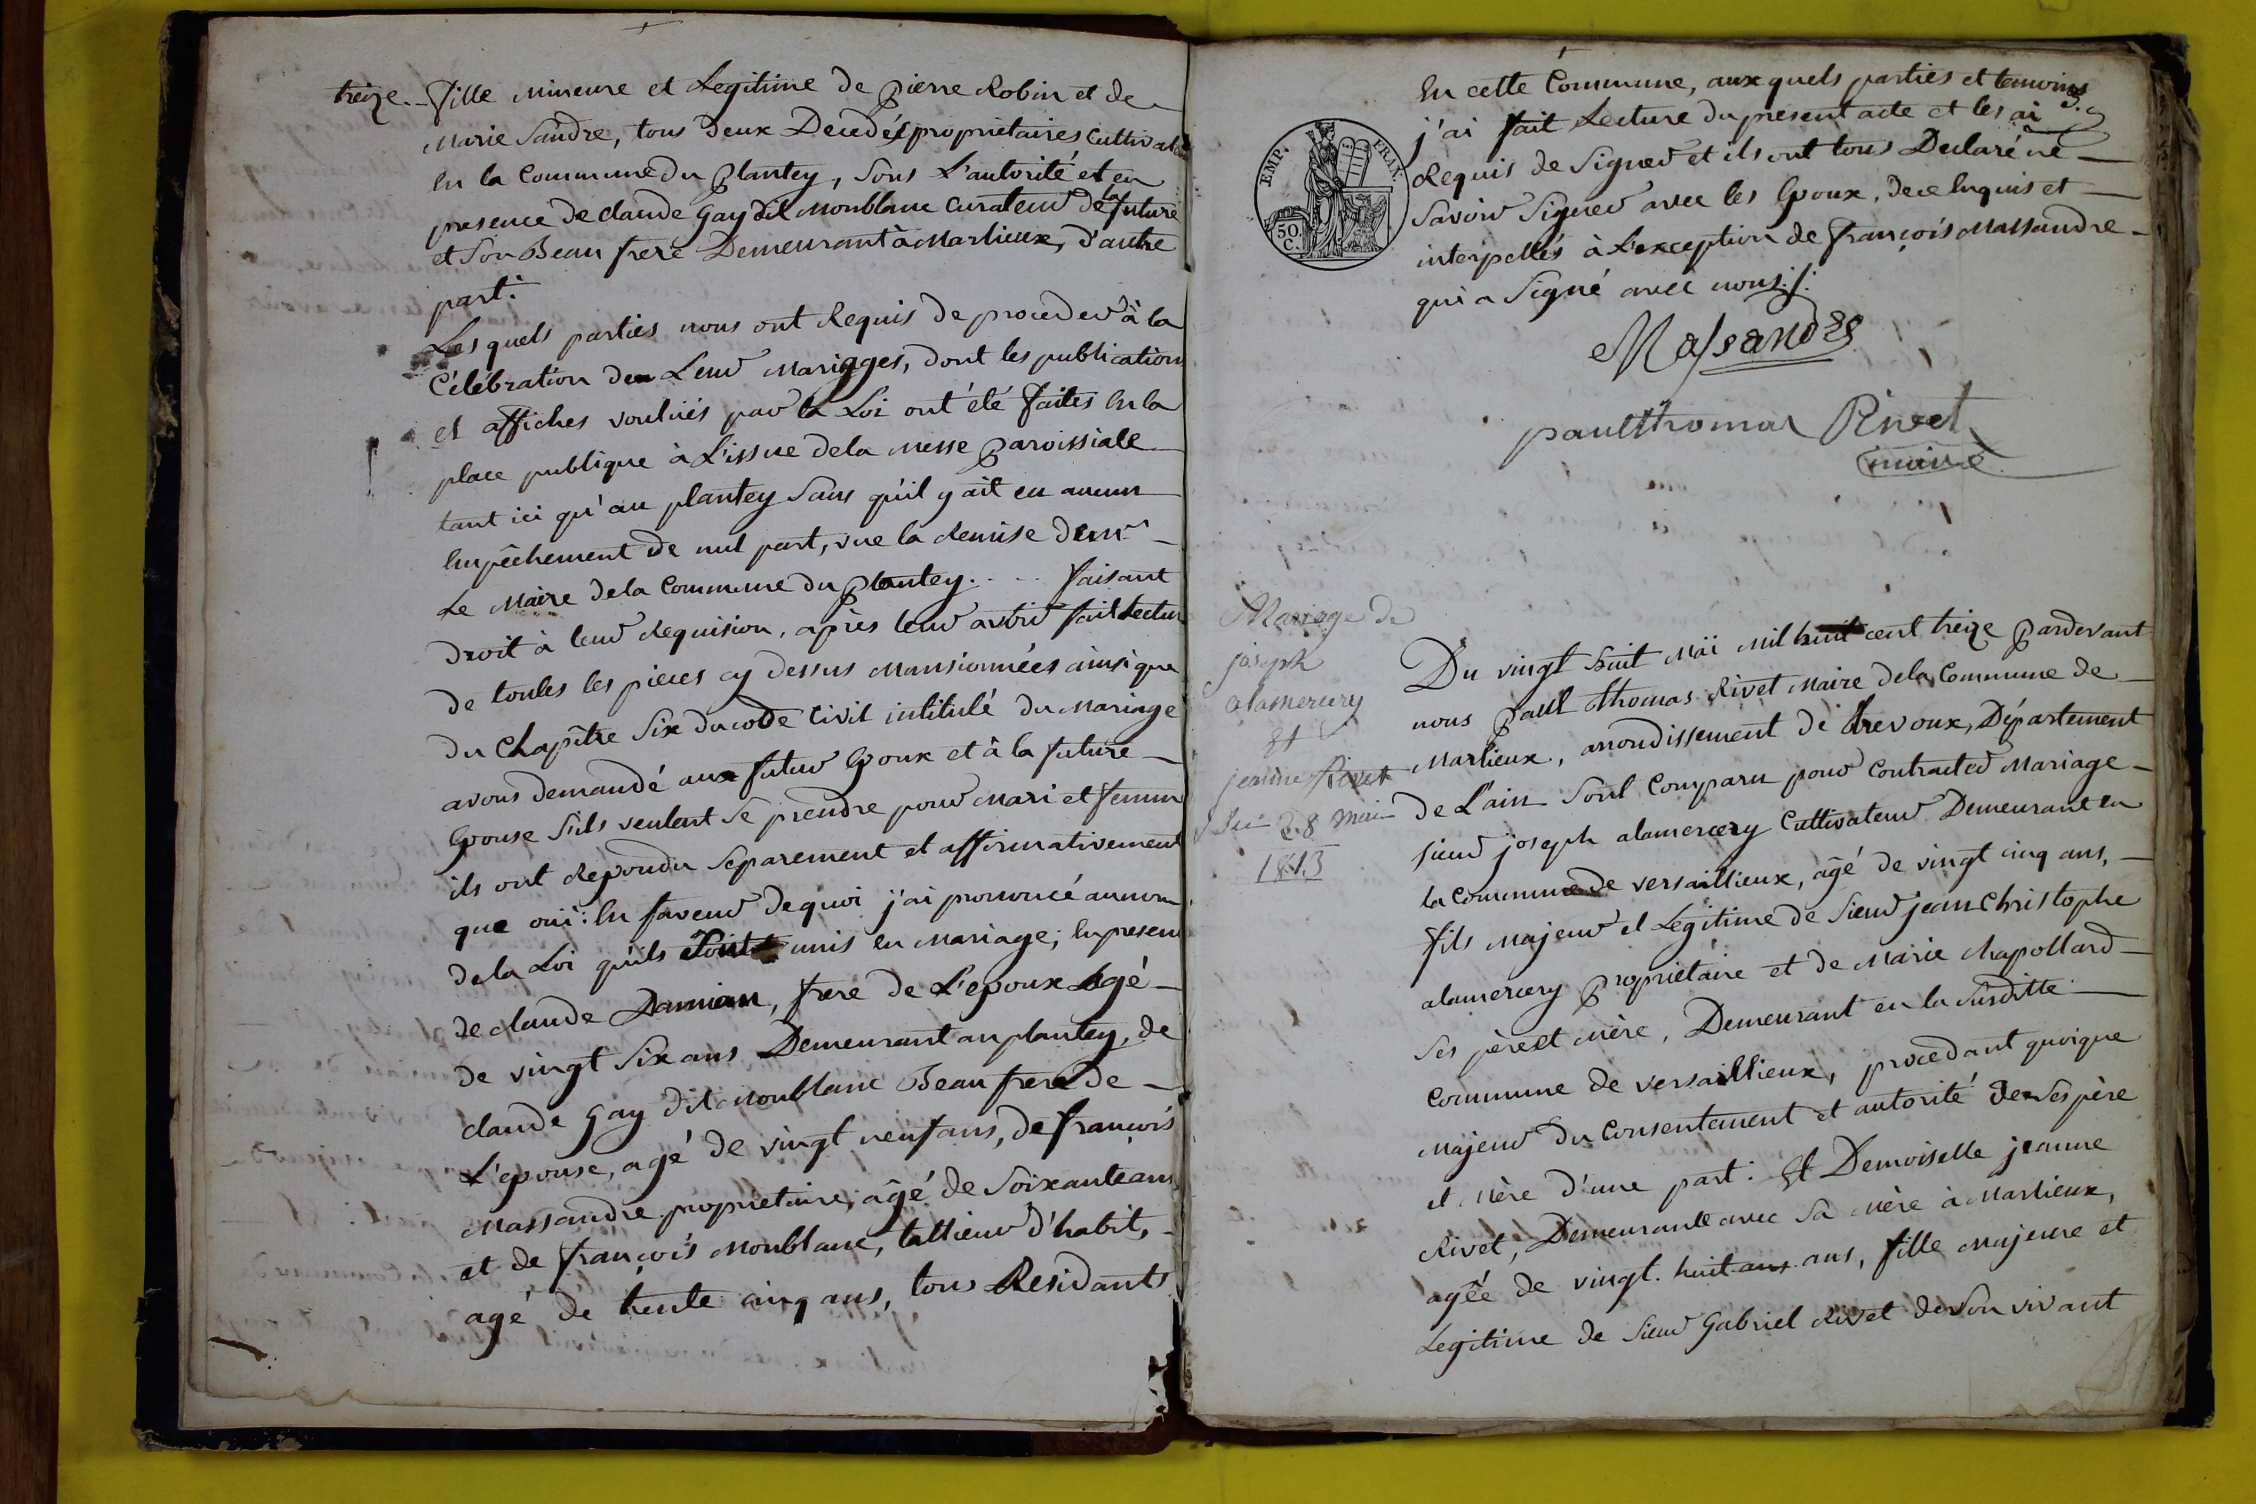 treize. fille mineure et Legitime de pierre Robin et de
Marie Sandre, tous deux Decedés proprietaires Cultivat
en la Commune du plantey, sous L'autorité et en
presence de claude Gay dit Monblanc curateur de la future
et Son Beau frere Demeurant à Marlieux, d'autre
part.
Les quels parties nous ont Requis de proceder à la
Célébration de Leur Mariages, dont les publication
et affiches voulües par la Loi ont été faites en la
place publique à L'issue de la Messe paroissiale
tant ici qu'au plantey sans qu'il y ait eu aucun
Empêchement de nul part, vue la Remise
Le Maire de la Commune du plantey. . . . faisant
droit à leur Requision, après leur avoir fait Lectur
de toutes les pieces cy dessus Mansionnées ainsi que
du Chapître Six du code Civil intitulé du Mariage
avons demandé aux futur Epoux et à la future
Epouse s'ils veulent se prendre pour Mari et femm
ils ont Repondu Separement et affirmativement
que oui: En faveur de quoi j'ai prononcé au nom
de la Loi qu'ils unis en Mariage; En presen
de claude Damian, frere de L'epoux Agé
de vingt Six ans Demeurant au plantey, de
claude Gay dit Monblanc Beau frere de
L'epouse, agé de vingt neuf ans, de françois
Massandre proprietaire, âgé de Soixante ans
et de françois Monblanc, tallieur d'habit,
agé de trente cinq ans, tous Residants
En cette Commune, aux quels parties et temoins
j'ai fait Lecture du present acte et les ai
Requis de Signer et ils ont tous Declaré ne
Savoir Signer avec les Epoux, de ce Enquis et
interpellés à L'exception de françois Massandre
qui a Signé avec nous./.
EMP. FRAN.
50.
C.
Massandre
paul thomas Rivet
maire
Mariage de
joseph
alamercery
et
jeanne Rivet
du 28 mai
1813
Du vingt huit Maï Mil huit cent treize pardevant
nous paul thomas Rivet Maire de la Commune de
Marlieux, arrondissement de trevoux, Département
de L'ain Sont Comparu pour Contracter Mariage
sieur joseph alamercery Cultivateur Demeurant en
la Commune de versaillieux, âgé de vingt cinq ans,
fils Majeur et Legitime de Sieur jean Christophe
alamercery proprietaire et de Marie Chapollard
Ses père et Mère, Demeurant en la Susditte
Commune de versaillieux, procedant quoique
Majeur du Consentement et autorité de Ses père
et Mère d'une part: Et Demoiselle jeanne
Rivet, Demeurante avec Sa Mère à Marlieux,
agée de vingt. huit ans ans, fille Majeure et
Legitime de Sieur Gabriel Rivet de Son vivant